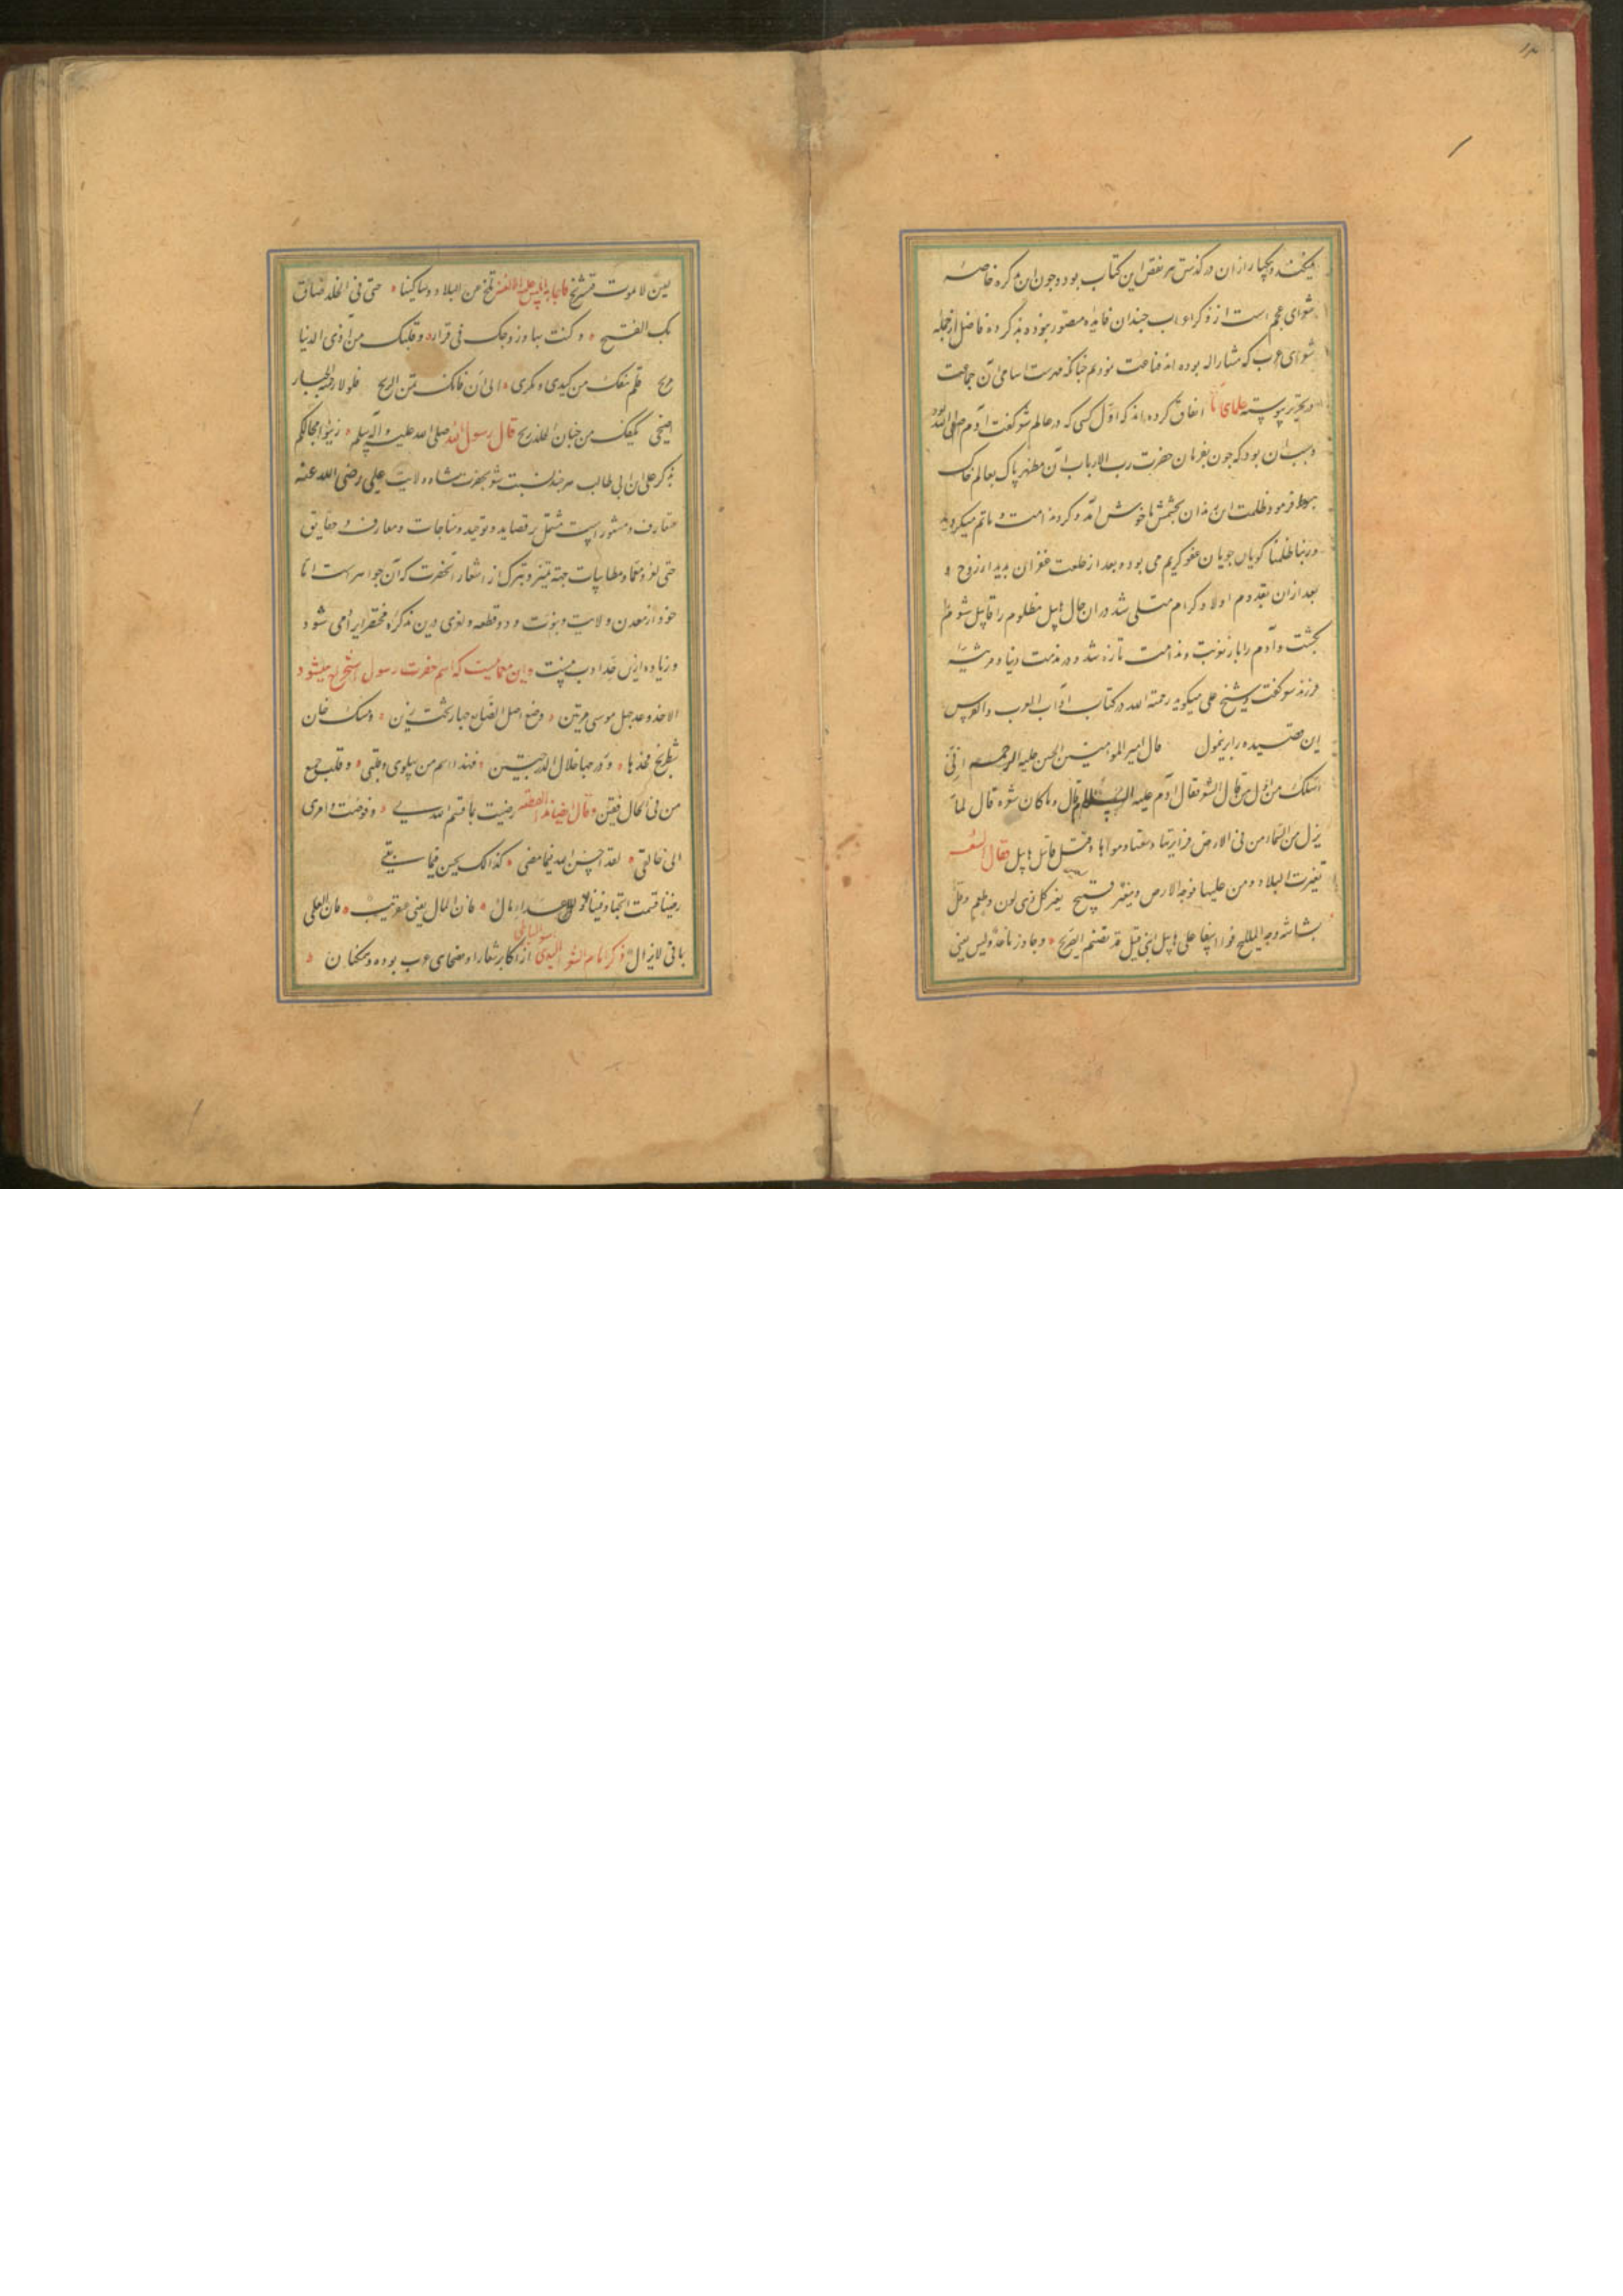 میکنند و یکبار از آن در گذشتن هر نقص این کتاب بود و چون این تذکره خاصه
شعرای عجم است از ذکر اعراب چندان فایده متصور نبوده بذکر ده فاضل از جمله
شعرای عرب که مشار الیه بوده اند قناعت نمودیم چنانکه فهرست اسامی آن جماعت
بتحریر پیوسته علمای اتفاق کرده اند که اول کسی که در عالم شعر گفت آدم صلی الله بود
و سبب آن بود که چون بفرمان حضرت رب الارباب آن مطهر پاک بعالم خاک
هبوط فرمود ظلمت این زندان بچشمش ناخوش آمد و گرد ندامت و ماتم میگردید
و ربنا ظلمنا گویان جویان عفو کریم می بوده بعد از خلعت غفران بدیدار زوج و
بعد از آن بقدوم اولاد کرام متسلی شد در آن حال هابیل مظلوم را قابیل شوم
بکشت و آدم را باز غربت و ندامت تازه شد و در مذمت دنیا و مرثیه
فرزند شعر گفت و شیخ علی میگوید رحمة الله در کتاب آداب العرب والفرس
این قصیده را قال امیر المومنین الحسن علیه الرحمه انی
اسئلک من اول من قال الشعر فقال آدم علیه السلام قال و ما کان شعره قال لما
نزل من السماء من فی الارض فرای تربتها و سعتها و هواها و قتل قابیل هابیل فقال الشعر
تغیرت البلاد و من علیها فوجه الارض مغبر قبیح تغیر کل ذی لون و طعم و قل
بشاشة وجه الملیح فوا اسفا علی هابیل ابنی قتیل قد تضمنه الضریح و جاور ناعدو لیس یفنی
لعین لا یموت فنستریح فاجابه ابلیس علیه اللعن تنح عن البلاد و ساکنیها حتی فی الخلد ضاق
بک الفسیح و کنت بها و زوجک فی قرار و قلبک من اذی الدنیا
مریح فلم تنفک من کیدی و مکری الی ان فاتک ثمن الربح فلولا رحمة الجبار
اضحی بکفک من جنان الخلد ریح قال رسول الله صلی الله علیه و آله و سلم زینوا مجالسکم
بذکر علی ابن ابی طالب هر چند نسبت شعر بحضرت شاه ولایت علی رضی الله عنه
متعارف و مشهور است مشتمل بر قصاید و توحید و مناجات و معارف و حقایق
حتی لغز و معما و مطایبات جهة تیمن و تبرک از اشعار آنحضرت که آن جواهر است اما
خود از معدن ولایت و نبوت و دو قطعه و لغزی درین تذکره مختصر ایراد می شود
و زیاده ازین حد ادب نیست و این معمائیست که اسم حضرت رسول استخراج میشود
الا خذ وعد موسی مرتین وضع اصل الطبایع تحت ذین و سکه خان
شطرنج فخذها و درجها خلال الدرجتین فهذا اسم من یهوی و قلبی و قلب جمیع
من فی الخافقین و قال ایضا رضیت بما قسم الله لی و فوضت امری
الی خالقی لقد احسن الله فیما مضی کذالک یحسن فیما بقی
رضینا قسمة الجبار فینا لنا علم و للاعداء مال فان المال یفنی عنقریب و ان العلم
باقی لا یزال ذکر امام الشعرا از اکابر شعرا و فصحای عرب بوده و مسکن آن